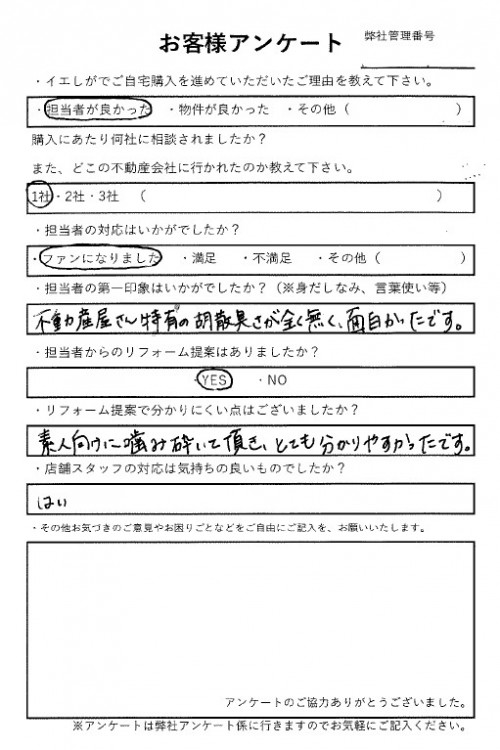 お客様アンケート
弊社管理番号
・イエしがでご自宅購入を進めていただいたご理由を教えて下さい。
・担当者が良かった ・物件が良かった ・その他（ ）
購入にあたり何社に相談されましたか？
また、どこの不動産会社に行かれたのか教えて下さい。
1社・2社・3社 （ ）
・担当者の対応はいかがでしたか？
・ファンになりました ・満足 ・不満足 ・その他（ ）
・担当者の第一印象はいかがでしたか？（※身だしなみ、言葉使い等）
不動産屋さん特有の胡散臭さが全く無く、面白かったです。
・担当者からのリフォーム提案はありましたか？
・YES ・NO
・リフォーム提案で分かりにくい点はございましたか？
素人向けに噛み砕いて頂き、とても分かりやすかったです。
・店舗スタッフの対応は気持ちの良いものでしたか？
はい
・その他お気づきのご意見やお困りごとなどをご自由にご記入を、お願いいたします。
アンケートのご協力ありがとうございました。
※アンケートは弊社アンケート係に行きますのでお気軽にご記入ください。